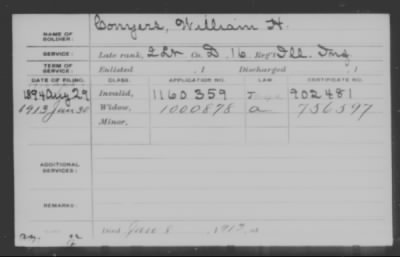 NAME OF SOLDIER: Conyers, William H.
SERVICE: Late rank, 2 Lt Co. D, 16 Reg't Ill. Inf.
TERM OF SERVICE: Enlisted , 1 Discharged , 1
DATE OF FILING. CLASS. APPLICATION NO. LAW. CERTIFICATE NO.
1894 Aug 29 Invalid, 1160359 902481
1913 Jan 30 Widow, 1000878 a 756597
Minor,
ADDITIONAL SERVICES:
REMARKS:
Died 8 1912, at